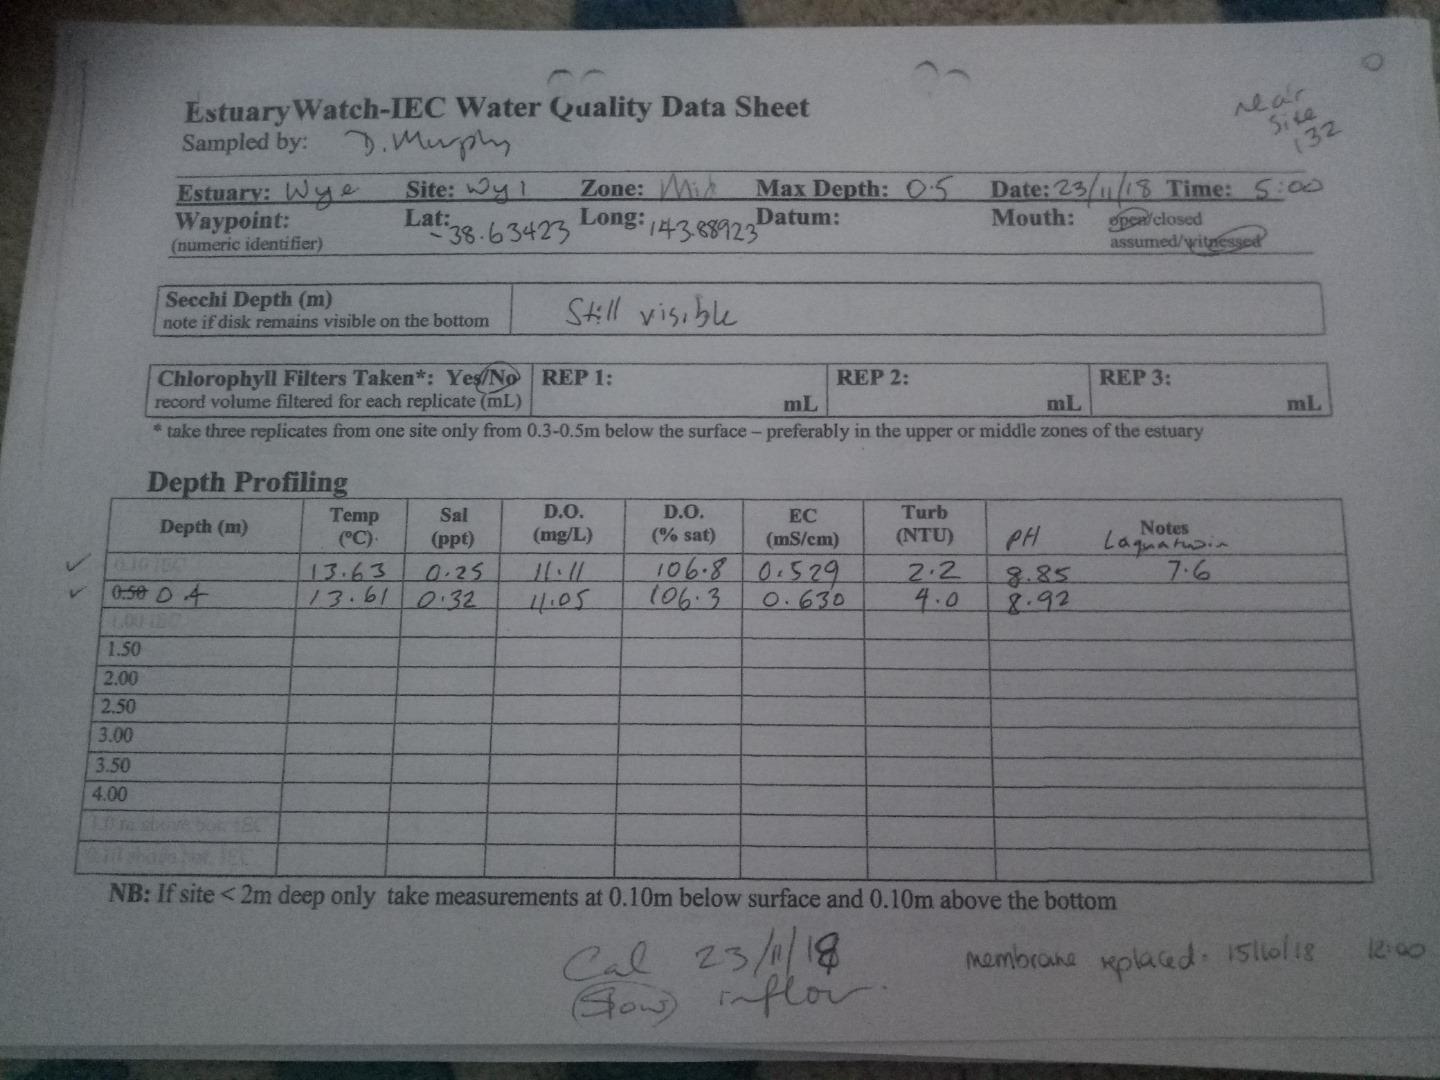 EstuaryWatch-IEC Water Quality Data Sheet
near
Site
132
Sampled by: D. Murphy
Estuary: Wye Site: Wy1 Zone: Mid Max Depth: 0.5 Date: 23/11/18 Time: 5:00
Waypoint: Lat: -38.63423 Long: 143.88923 Datum: Mouth: open/closed
(numeric identifier) assumed/witnessed
Secchi Depth (m) Still visible
note if disk remains visible on the bottom
Chlorophyll Filters Taken*: Yes/No REP 1: REP 2: REP 3:
record volume filtered for each replicate (mL) mL mL mL
* take three replicates from one site only from 0.3-0.5m below the surface – preferably in the upper or middle zones of the estuary
Depth Profiling
Depth (m) Temp (°C) Sal (ppt) D.O. (mg/L) D.O. (% sat) EC (mS/cm) Turb (NTU) pH Notes Laquatwin
0.10 IEC 13.63 0.25 11.11 106.8 0.529 2.2 8.85 7.6
0.50 0.4 13.61 0.32 11.05 106.3 0.630 4.0 8.92
1.00 IEC
1.50
2.00
2.50
3.00
3.50
4.00
1.0 m above bot. IEC
0.10 above bot. IEC
NB: If site < 2m deep only take measurements at 0.10m below surface and 0.10m above the bottom
Cal 23/11/18 membrane replaced. 15/10/18 12:00
inflow.